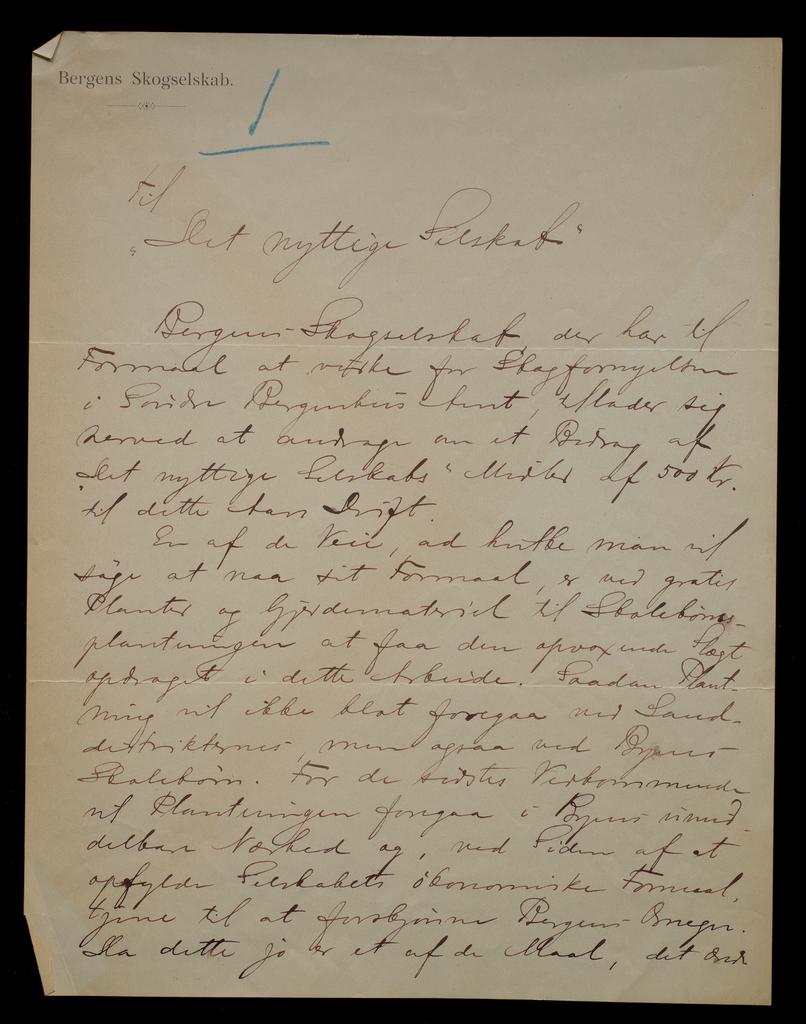 Bergens Skogselskab.
1
Til
"Det nyttige Selskab"
Bergens Skogselskab, der har til
Formaal at virke for Skogfornyelsen
i Søndre Bergenhus Amt, tillader sig
herved at andrage om et Bidrag af
"Det nyttige Selskabs" Midler af 500 Kr.
til dette dets Drift.
En af de Veie, ad hvilke man vil
søge at naa sit Formaal, er ved gratis
Planter og Gjerdemateriel til Skolebørns-
plantningen at faa den opvoxende Slægt
opdraget i dette Arbeide. Saadan Plant-
ning vil ikke blot foregaa ved Land-
distrikternes, men ogsaa ved Byens
Skolebørn. For de sidstes Vedkommende
vil Plantningen foregaa i Byens umid-
delbare Nærhed og, ved Siden af at
opfylde Selskabets økonomiske Formaal,
tjene til at forskjønne Bergens Omegn.
Da dette jo er et af de Maal, det